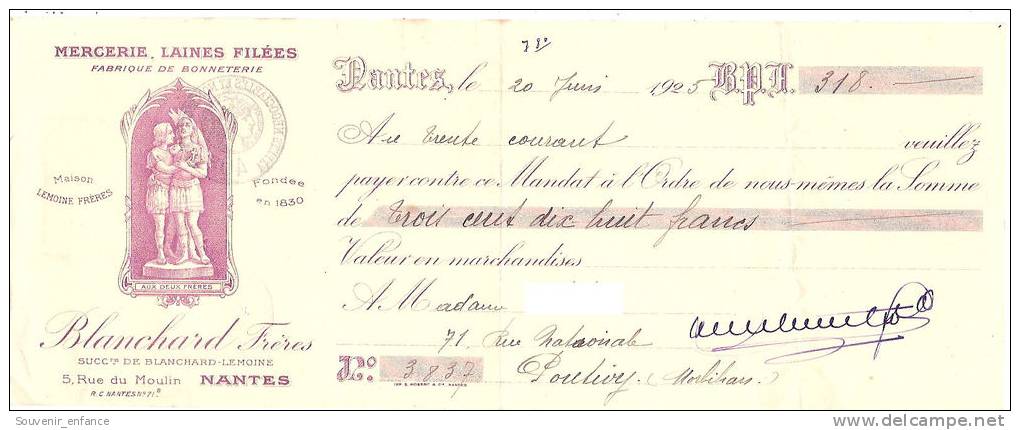 MERCERIE, LAINES FILÉES
FABRIQUE DE BONNETERIE
Maison
LEMOINE FRÈRES
Fondée
en 1830
AUX DEUX FRÈRES
Blanchard Frères
SUCC.rs DE BLANCHARD-LEMOINE
5, Rue du Moulin NANTES
R.C. NANTES Nº 71.B
Nantes, le 20 Juin 1925 B.P.F. 318.
Au trente courant veuillez
payer contre ce Mandat à l'Ordre de nous-mêmes la Somme
de trois cent dix huit francs
Valeur en marchandises
A Madame
71 Rue Nationale
Nº 3.837 Pontivy (Morbihan)
Souvenir_enfance
delcampe.net